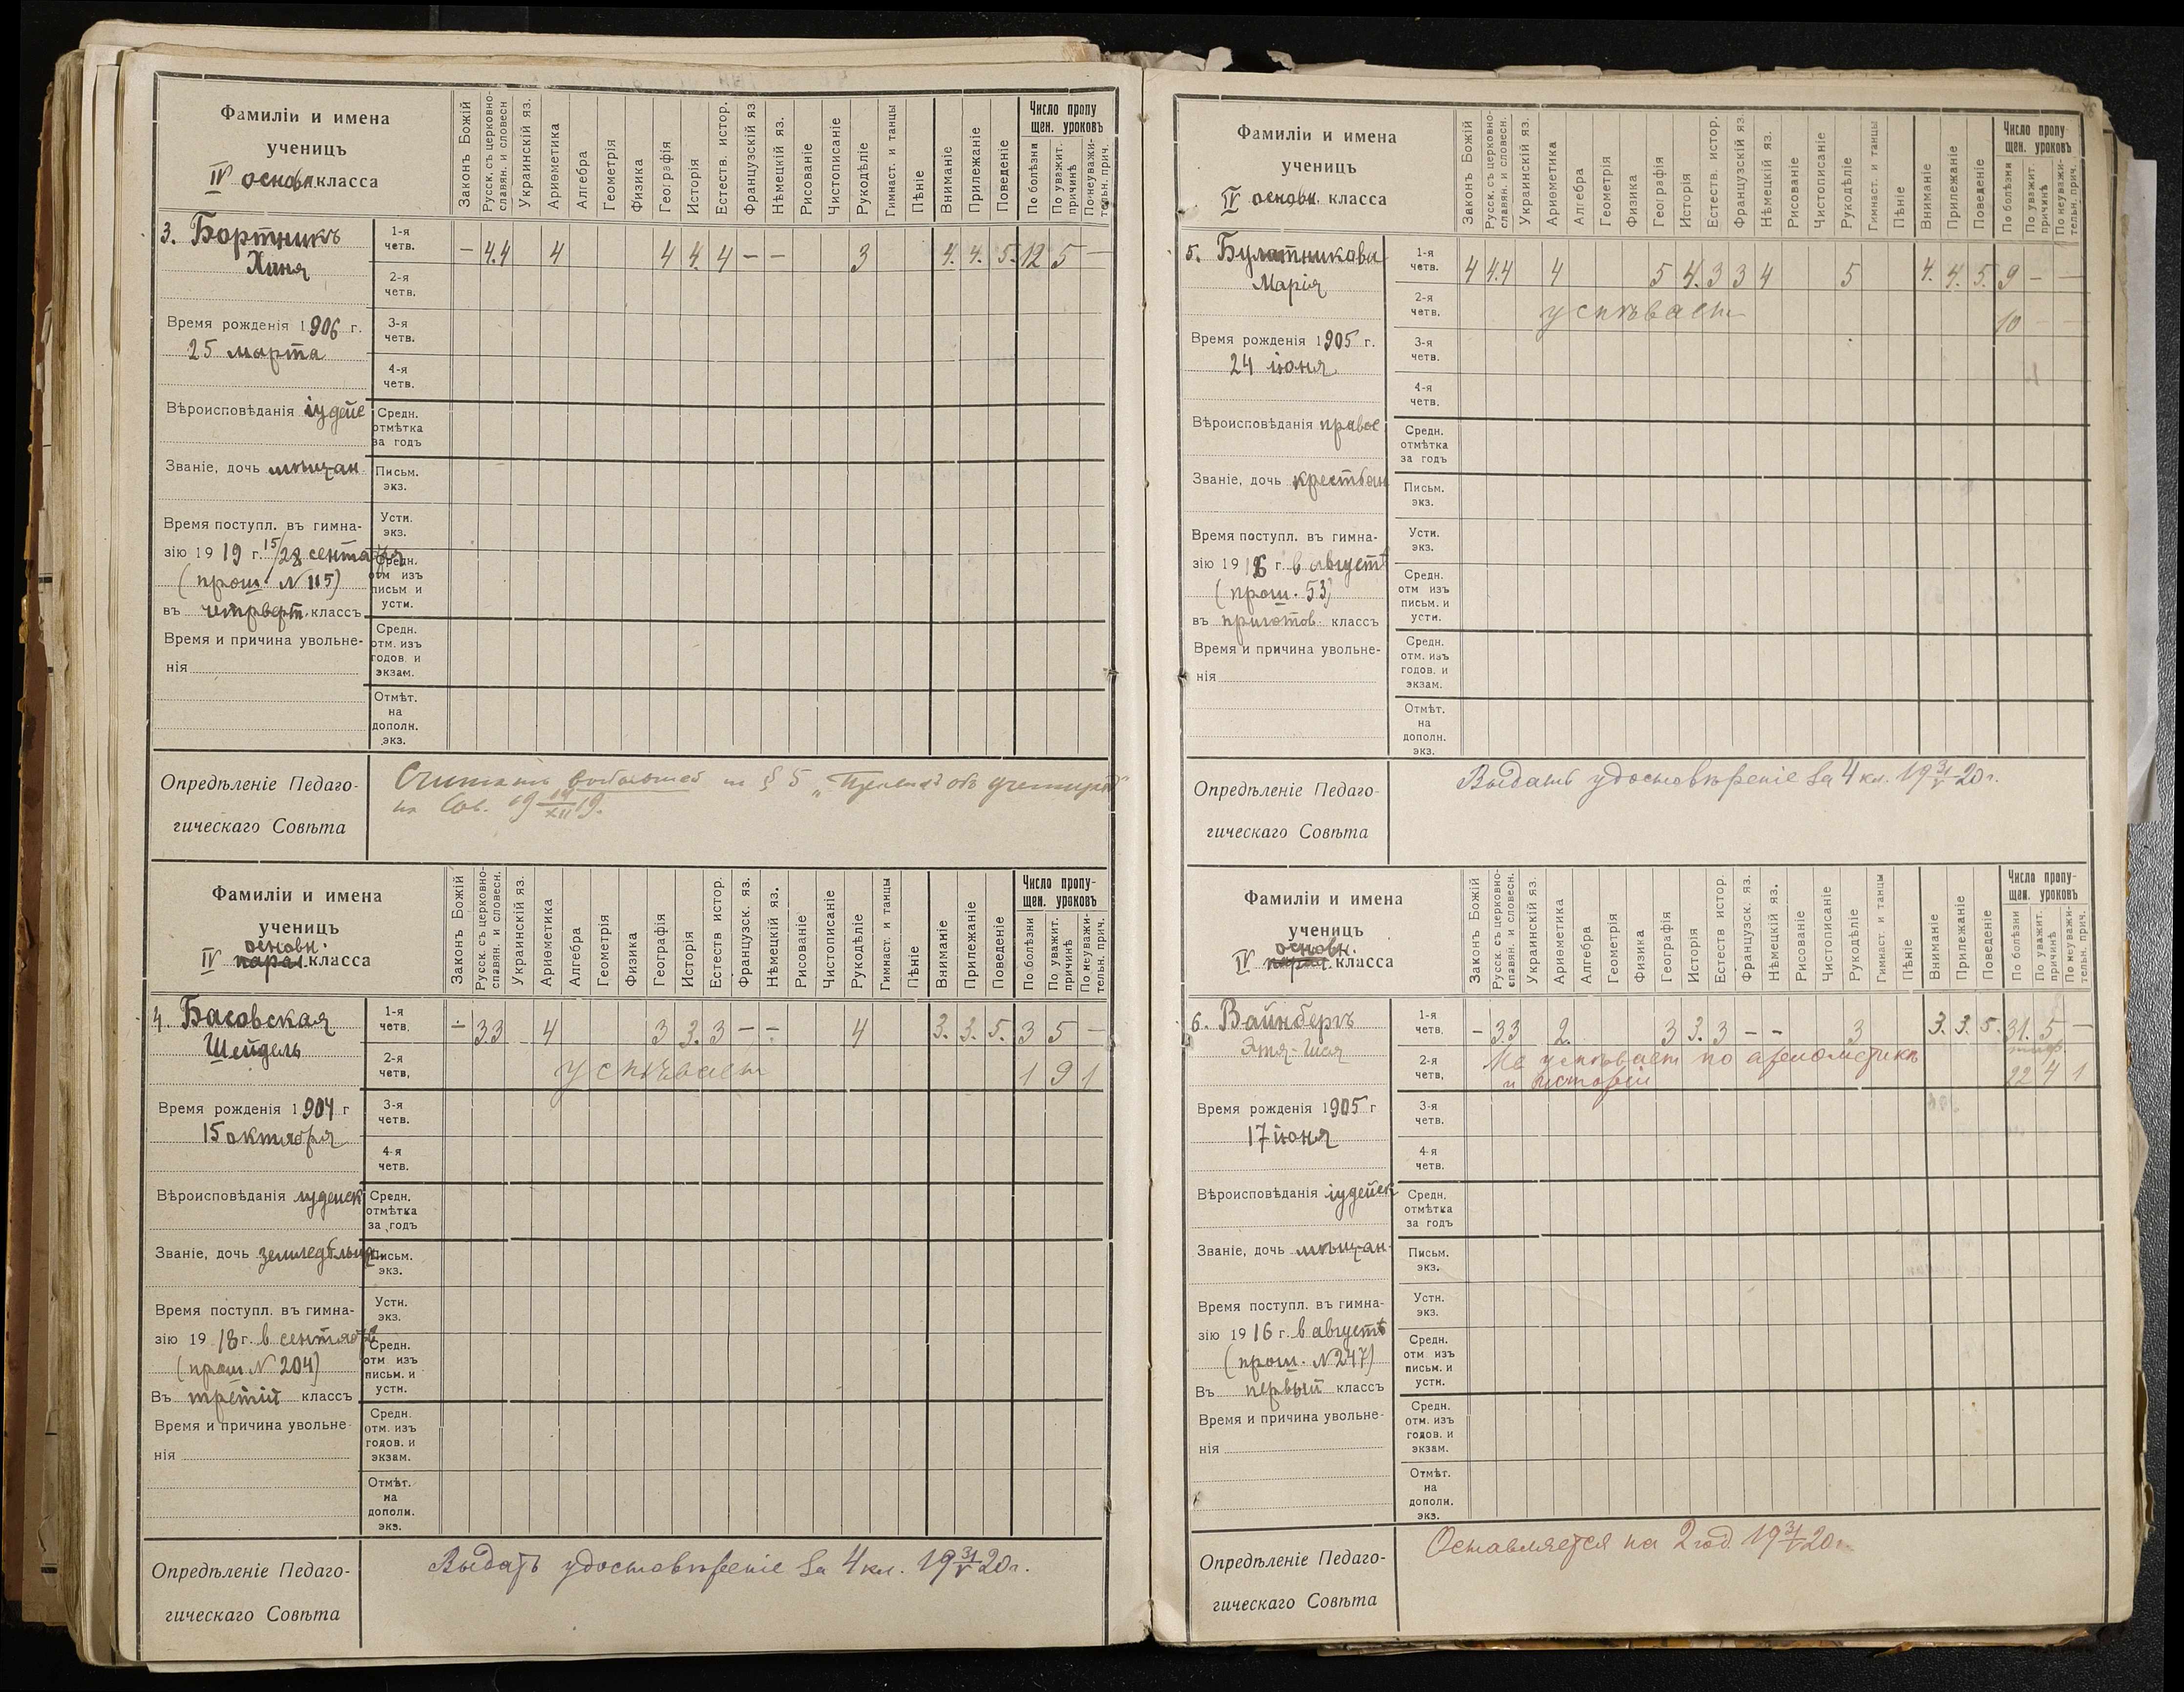 Фамиліи и имена
ученицъ
IV основн. класса
Законъ Божій
Русск. съ церковно-
славян. и словесн
Украинскій яз.
Ариѳметика
Алгебра
Геометрія
Физика
Географія
Исторія
Естеств. истор.
Французскій яз
Нѣмецкій яз.
Рисованіе
Чистописаніе
Рукодѣліе
Гимнаст. и танцы
Пѣніе
Вниманіе
Прилежаніе
Поведеніе
Число пропу
щен. уроковъ
По болѣзни
По уважит.
причинѣ
По неуважи-
тельн. прич.
3. Бортникъ
Ханя
1-я
четв.
— 4.4 4 4 4. 4 — — 3 4. 4. 5. 12 5 —
2-я
четв.
Время рожденія 1906 г.
25 марта
3-я
четв.
4-я
четв.
Вѣроисповѣданія іудейс
Средн.
отмѣтка
за годъ
Званіе, дочь мѣщан
Письм.
экз.
Время поступл. въ гимна-
зію 1919 г. 15/28 сентября
(прош. N 115)
въ четверт. классъ
Устн.
экз.
Средн.
отм изъ
письм и
устн.
Время и причина увольне-
нія
Средн.
отм. изъ
годов. и
экзам.
Отмѣт.
на
дополн.
экз.
Опредѣленіе Педаго-
гическаго Совѣта
Считать выбывшей § 5
19 19/XII 19.
Фамиліи и имена
ученицъ
основн.
IV парал. класса
Законъ Божій
Русск. съ церковно-
славян. и словесн.
Украинскій яз.
Ариѳметика
Алгебра
Геометрія
Физика
Географія
Исторія
Естеств истор.
Французск. яз.
Нѣмецкій яз.
Рисованіе
Чистописаніе
Рукодѣліе
Гимнаст. и танцы
Пѣніе
Вниманіе
Прилежаніе
Поведеніе
Число пропу-
щен. уроковъ
По болѣзни
По уважит.
причинѣ
По неуважи-
тельн. прич.
4. Басовская
Шейдель
1-я
четв.
— 33 4 3 3. 3 — — 4 3. 3. 5. 3 5 —
2-я
четв.
успѣваетъ 1 9 1
Время рожденія 1904 г
15 октября
3-я
четв.
4-я
четв.
Вѣроисповѣданія іудейск
Средн.
отмѣтка
за годъ
Званіе, дочь земледѣльца
Письм.
экз.
Время поступл. въ гимна-
зію 1918 г. в сентябрѣ
(прош. N 204)
Въ третій классъ
Устн.
экз.
Средн.
отм изъ
письм. и
устн.
Время и причина увольне-
нія
Средн.
отм. изъ
годов. и
экзам.
Отмѣт.
на
дополн.
экз.
Опредѣленіе Педаго-
гическаго Совѣта
Выдать удостовѣреніе за 4 кл. 19 31/V 20 г.
Фамиліи и имена
ученицъ
IV основн. класса
Законъ Божій
Русск. съ церковно-
славян. и словесн.
Украинскій яз.
Ариѳметика
Алгебра
Геометрія
Физика
Географія
Исторія
Естеств. истор.
Французскій яз.
Нѣмецкій яз.
Рисованіе
Чистописаніе
Рукодѣліе
Гимнаст. и танцы
Пѣніе
Вниманіе
Прилежаніе
Поведеніе
Число пропу-
щен. уроковъ
По болѣзни
По уважит.
причинѣ
По неуважи-
тельн. прич.
5. Булатникова
Марія
1-я
четв.
4 4.4 4 5 4. 3 3 4 5 4. 4. 5. 9 — —
2-я
четв.
успѣваетъ 10 — —
Время рожденія 1905 г.
24 іюня
3-я
четв.
4-я
четв.
Вѣроисповѣданія правос
Средн.
отмѣтка
за годъ
Званіе, дочь крестьян
Письм.
экз.
Время поступл. въ гимна-
зію 1916 г. в августѣ
(прош. 53)
въ приготов. классъ
Устн.
экз.
Средн.
отм изъ
письм. и
устн.
Время и причина увольне-
нія
Средн.
отм. изъ
годов. и
экзам.
Отмѣт.
на
дополн.
экз.
Опредѣленіе Педаго-
гическаго Совѣта
Выдать удостовѣреніе за 4 кл. 19 31/V 20 г.
Фамиліи и имена
ученицъ
основн.
IV парал. класса
Законъ Божій
Русск. съ церковно-
славян. и словесн.
Украинскій яз.
Ариѳметика
Алгебра
Геометрія
Физика
Географія
Исторія
Естеств истор.
Французск. яз.
Нѣмецкій яз.
Рисованіе
Чистописаніе
Рукодѣліе
Гимнаст. и танцы
Пѣніе
Вниманіе
Прилежаніе
Поведеніе
Число пропу-
щен. уроковъ
По болѣзни
По уважит.
причинѣ
По неуважи-
тельн. прич.
6. Вайнбергъ
Этя-Шея
1-я
четв.
— 33 2. 3 3. 3 — — 3 3. 3. 5. 31. 5 —
2-я
четв.
Не успѣваетъ по ариѳметикѣ
и исторіи 22 4 1
Время рожденія 1905 г
17 іюня
3-я
четв.
4-я
четв.
Вѣроисповѣданія іудейск
Средн.
отмѣтка
за годъ
Званіе, дочь мѣщан
Письм.
экз.
Время поступл. въ гимна-
зію 1916 г. в августѣ
(прош. N 247)
Въ первый классъ
Устн.
экз.
Средн.
отм изъ
письм. и
устн.
Время и причина увольне-
нія
Средн.
отм. изъ
годов. и
экзам.
Отмѣт.
на
дополн.
экз.
Опредѣленіе Педаго-
гическаго Совѣта
Оставляется на 2 год 19 31/V 20 г.